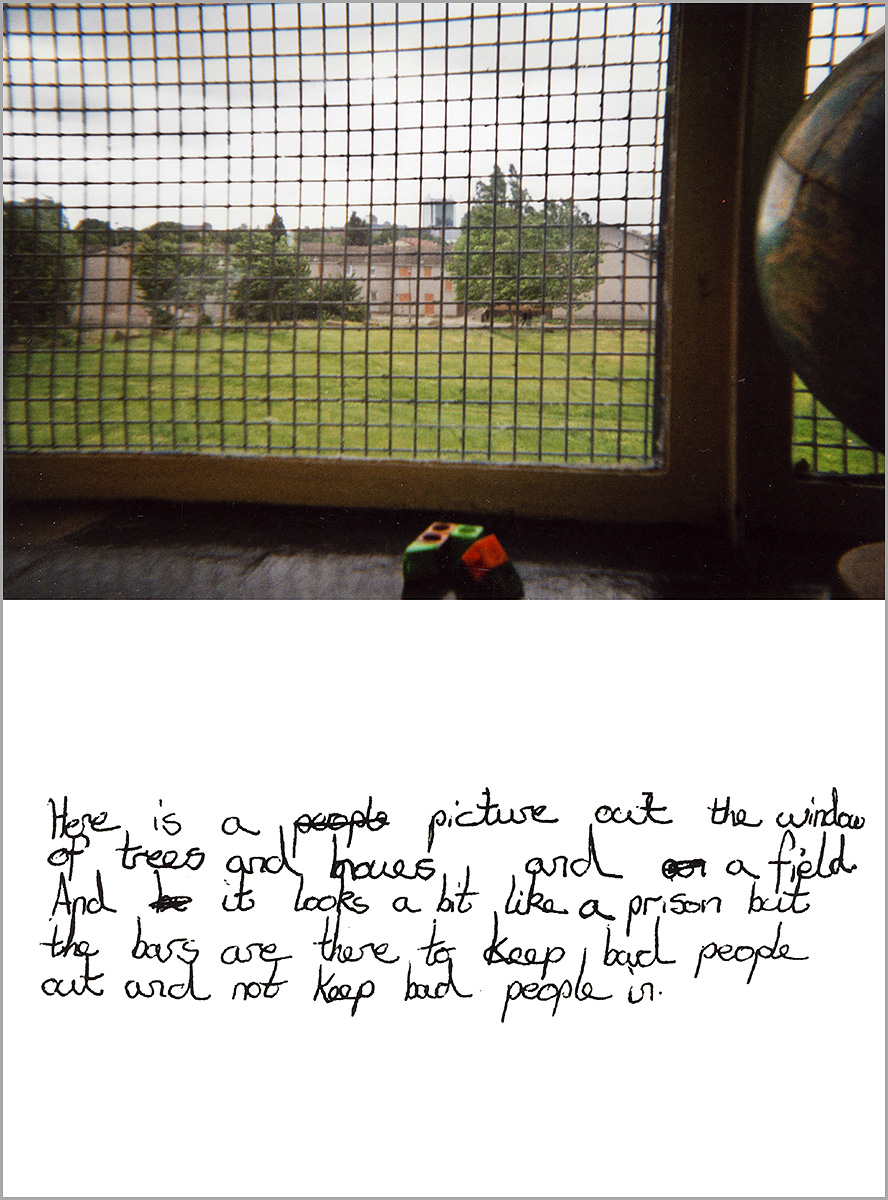 Here is a people picture out the window
of trees and houes, and a field.
And be it looks a bit like a prison but
the bars are there to keep bad people
out and not keep bad people in.